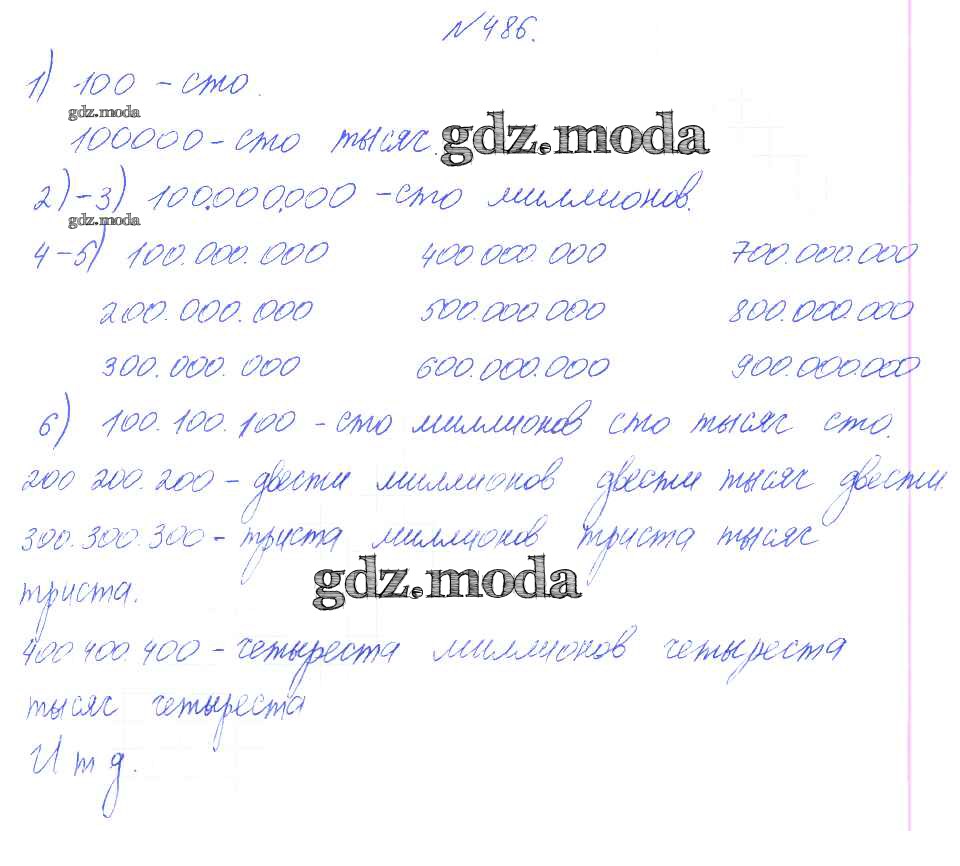 № 486.
1) 100 – сто.
gdz.moda
100000 – сто тысяч.
gdz.moda
2) – 3) 100.000.000 – сто миллионов.
gdz.moda
4 – 5) 100.000.000 400 000.000 700.000.000
200.000.000 500.000.000 800.000.000
300.000.000 600.000.000 900.000.000
6) 100.100.100 – сто миллионов сто тысяч сто.
200 200.200 – двести миллионов двести тысяч двести.
300.300.300 – триста миллионов триста тысяч
gdz.moda
триста.
400 400.400 – четыреста миллионов четыреста
тысяч четыреста
И т д.